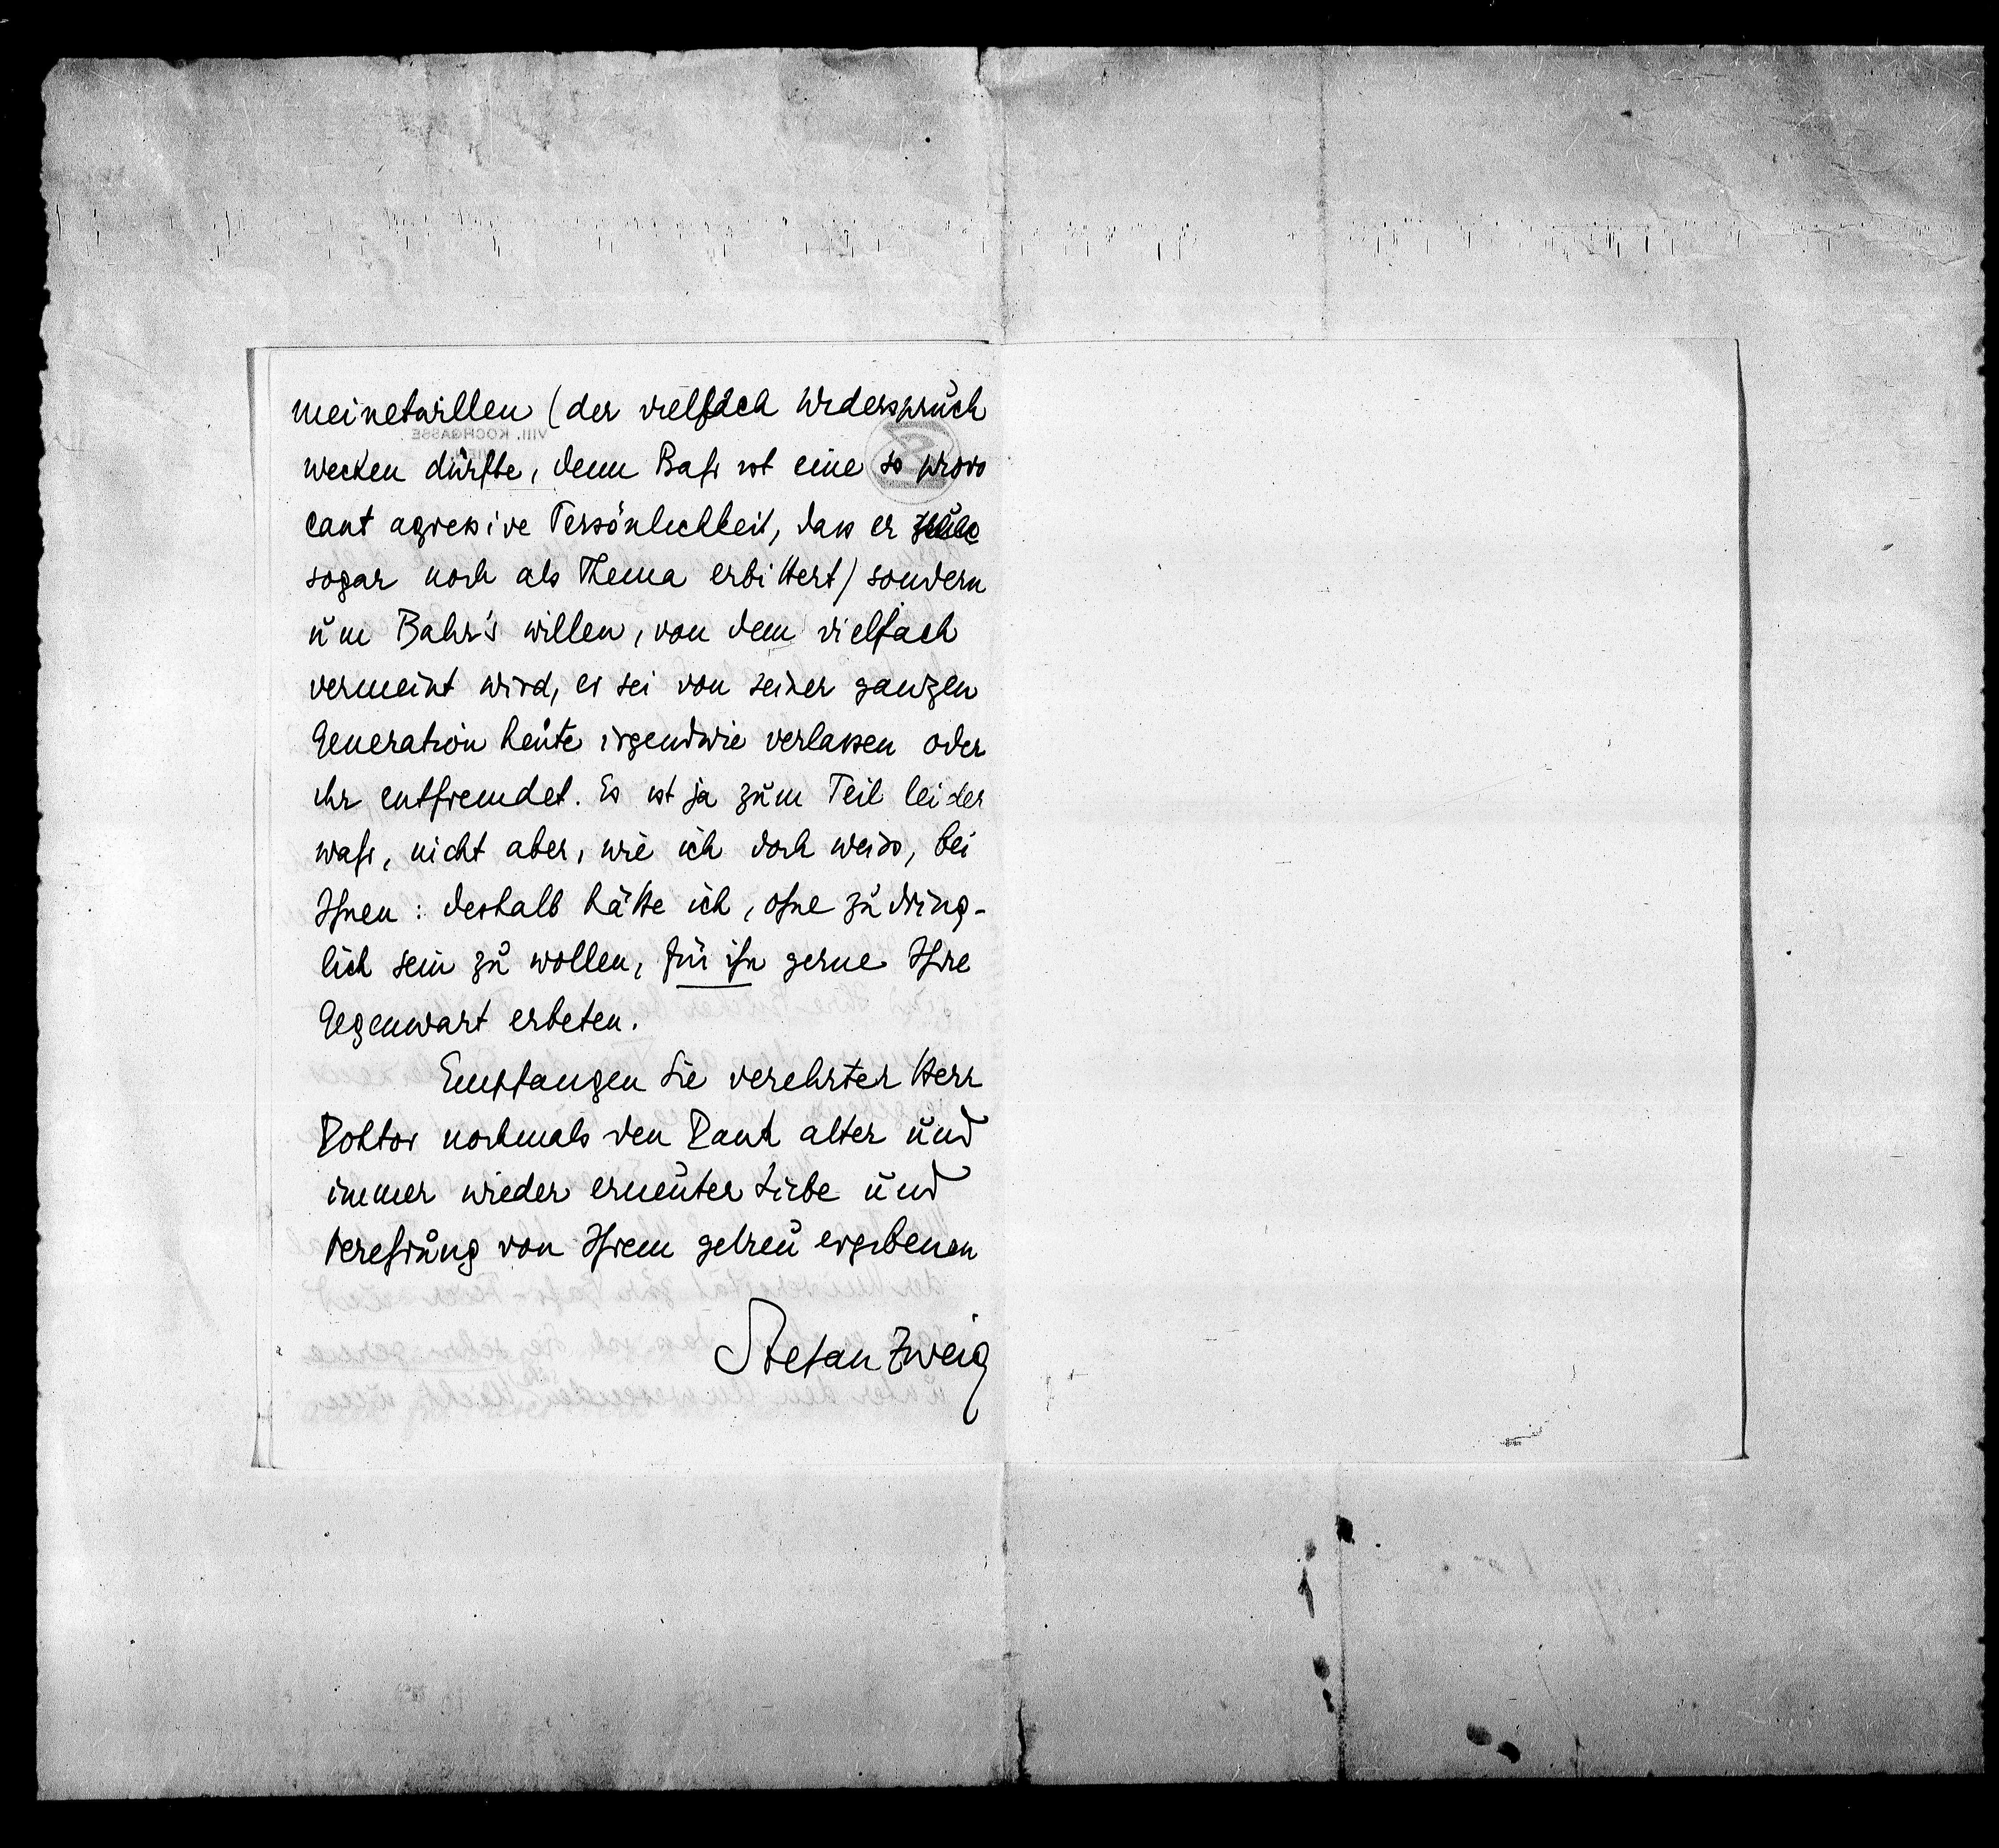 meinetwillen (der vielfach Widerspruch
wecken dürfte, denn Bahr ist eine so provo
cant agressive Persönlichkeit, dass er
sogar noch als Thema erbittert) sondern
um Bahr's willen, von dem vielfach
vermeint wird, er sei von seiner ganzen
Generation heute irgendwie verlassen oder
ihr entfremdet. Es ist ja zum Teil leider
wahr, nicht aber, wie ich doch weiss, bei
Ihnen: deshalb hätte ich, ohne zudring-
lich sein zu wollen, für ihn gerne Ihre
Gegenwart erbeten.
Empfangen Sie verehrter Herr
Doktor nochmals den Dank alter und
immer wieder erneuter Liebe und
Verehrung von Ihrem getreu ergebenen
Stefan Zweig